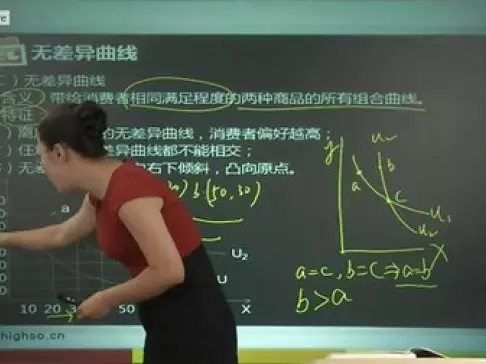 re
无差异曲线
）无差异曲线
含义） 带给消费者相同满足程度的两种商品的所有组合曲线。
特征
的无差异曲线，消费者偏好越高；
）任 差异曲线都不能相交；
）无差 向右下倾斜，凸向原点。
b(50,30)
y
u2
b
a
c
u1
u2
X
a
U2
U
10 20 30
50 X
a=c, b=c⇒a=b
b>a
highso.cn